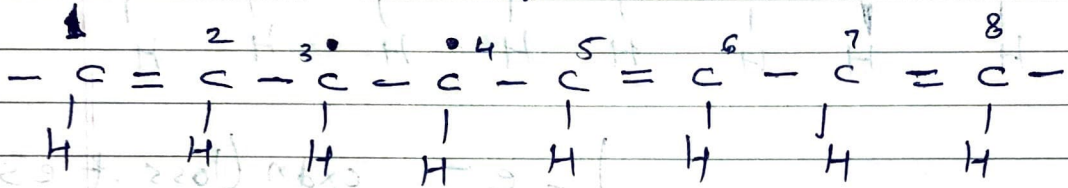 1 2 3• •4 5 6 7 8
- C = C - C - C - C = C - C = C -
H H H H H H H H